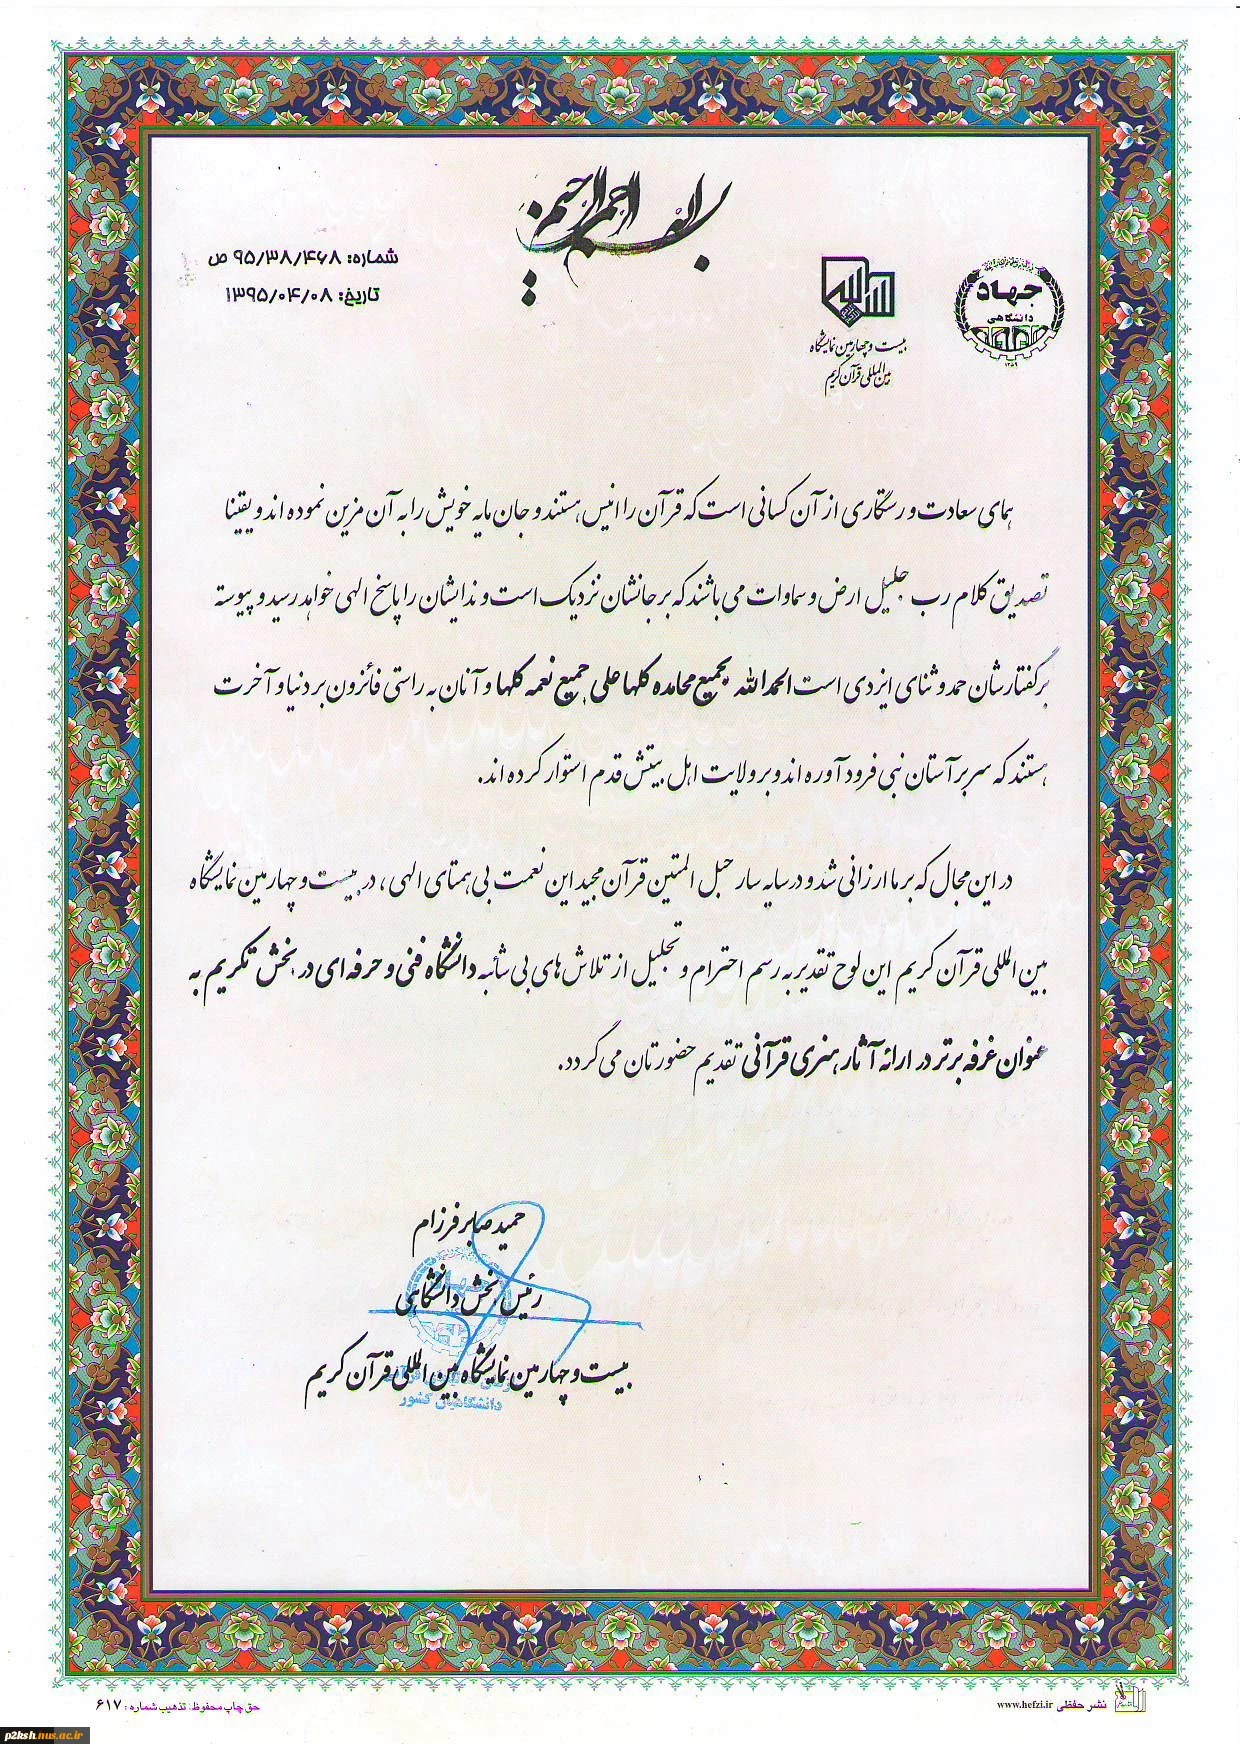 بسم الله الرحمن الرحیم
شماره: ۹۵/۳۸/۴۶۸ ص
تاریخ: ۱۳۹۵/۰۴/۰۸
جهاد
دانشگاهی
۱۳۵۹
بیست و چهارمین نمایشگاه
بین المللی قرآن کریم
همای سعادت و رستگاری از آن کسانی است که قرآن را انیس هستند و جان مایه خویش را به آن مزین نموده اند و یقینا
تصدیق کلام رب جلیل ارض و سماوات می باشند که بر جانشان نزدیک است و ندایشان را پاسخ الهی خواهد رسید و پیوسته
بر گفتارشان حمد و ثنای ایزدی است الحمدالله بجمیع محامده کلها علی جمیع نعمه کلها و آنان به راستی فائزون بر دنیا و آخرت
هستند که سر بر آستان نبی فرود آوره اند و بر ولایت اهل بیتش قدم استوار کرده اند.
در این مجال که بر ما ارزانی شد و در سایه سار حبل المتین قرآن مجید این نعمت بی همتای الهی ، در بیست و چهارمین نمایشگاه
بین المللی قرآن کریم این لوح تقدیر به رسم احترام و تجلیل از تلاش های بی شائبه دانشگاه فنی و حرفه ای در بخش تکریم به
عنوان غرفه برتر در ارائه آثار هنری قرآنی تقدیم حضورتان می گردد.
حمید صابر فرزام
رئیس بخش دانشگاهی
بیست و چهارمین نمایشگاه بین المللی قرآن کریم
دانشگاهیان کشور
حق چاپ محفوظ، تذهیب شماره: ۶۱۷
نشر حفظی www.hefzi.ir
p2ksh.nus.ac.ir